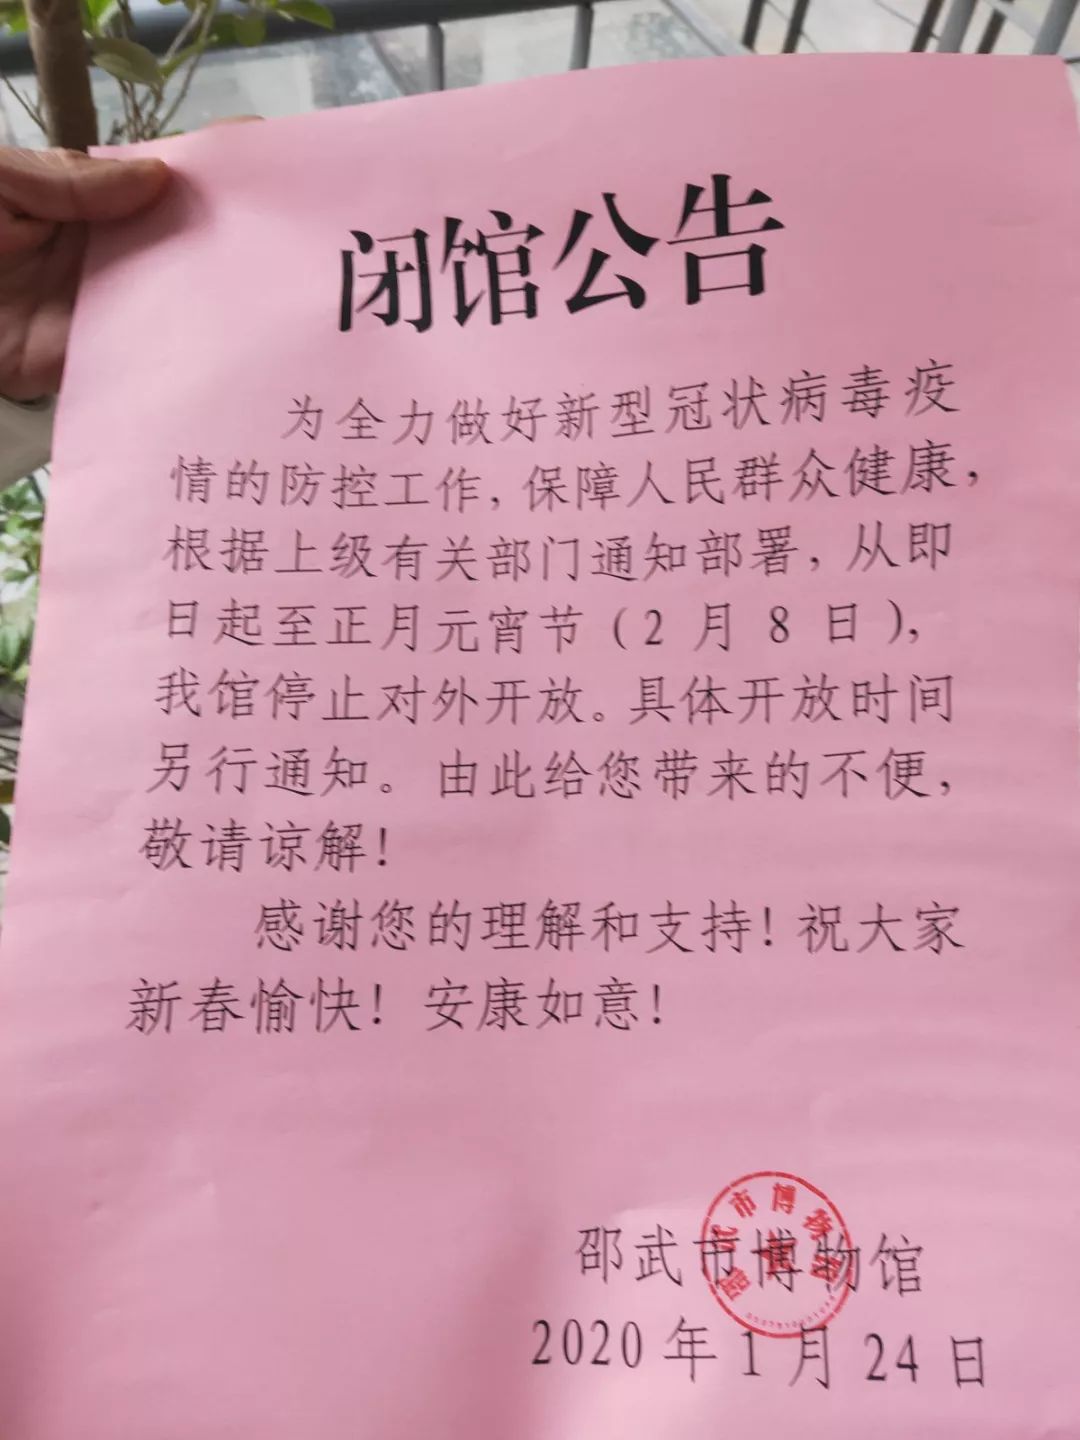 闭馆公告
为全力做好新型冠状病毒疫
情的防控工作，保障人民群众健康，
根据上级有关部门通知部署，从即
日起至正月元宵节（2 月 8 日），
我馆停止对外开放。具体开放时间
另行通知。由此给您带来的不便，
敬请谅解！
感谢您的理解和支持！祝大家
新春愉快！安康如意！
邵武市博物馆
2020 年 1 月 24 日